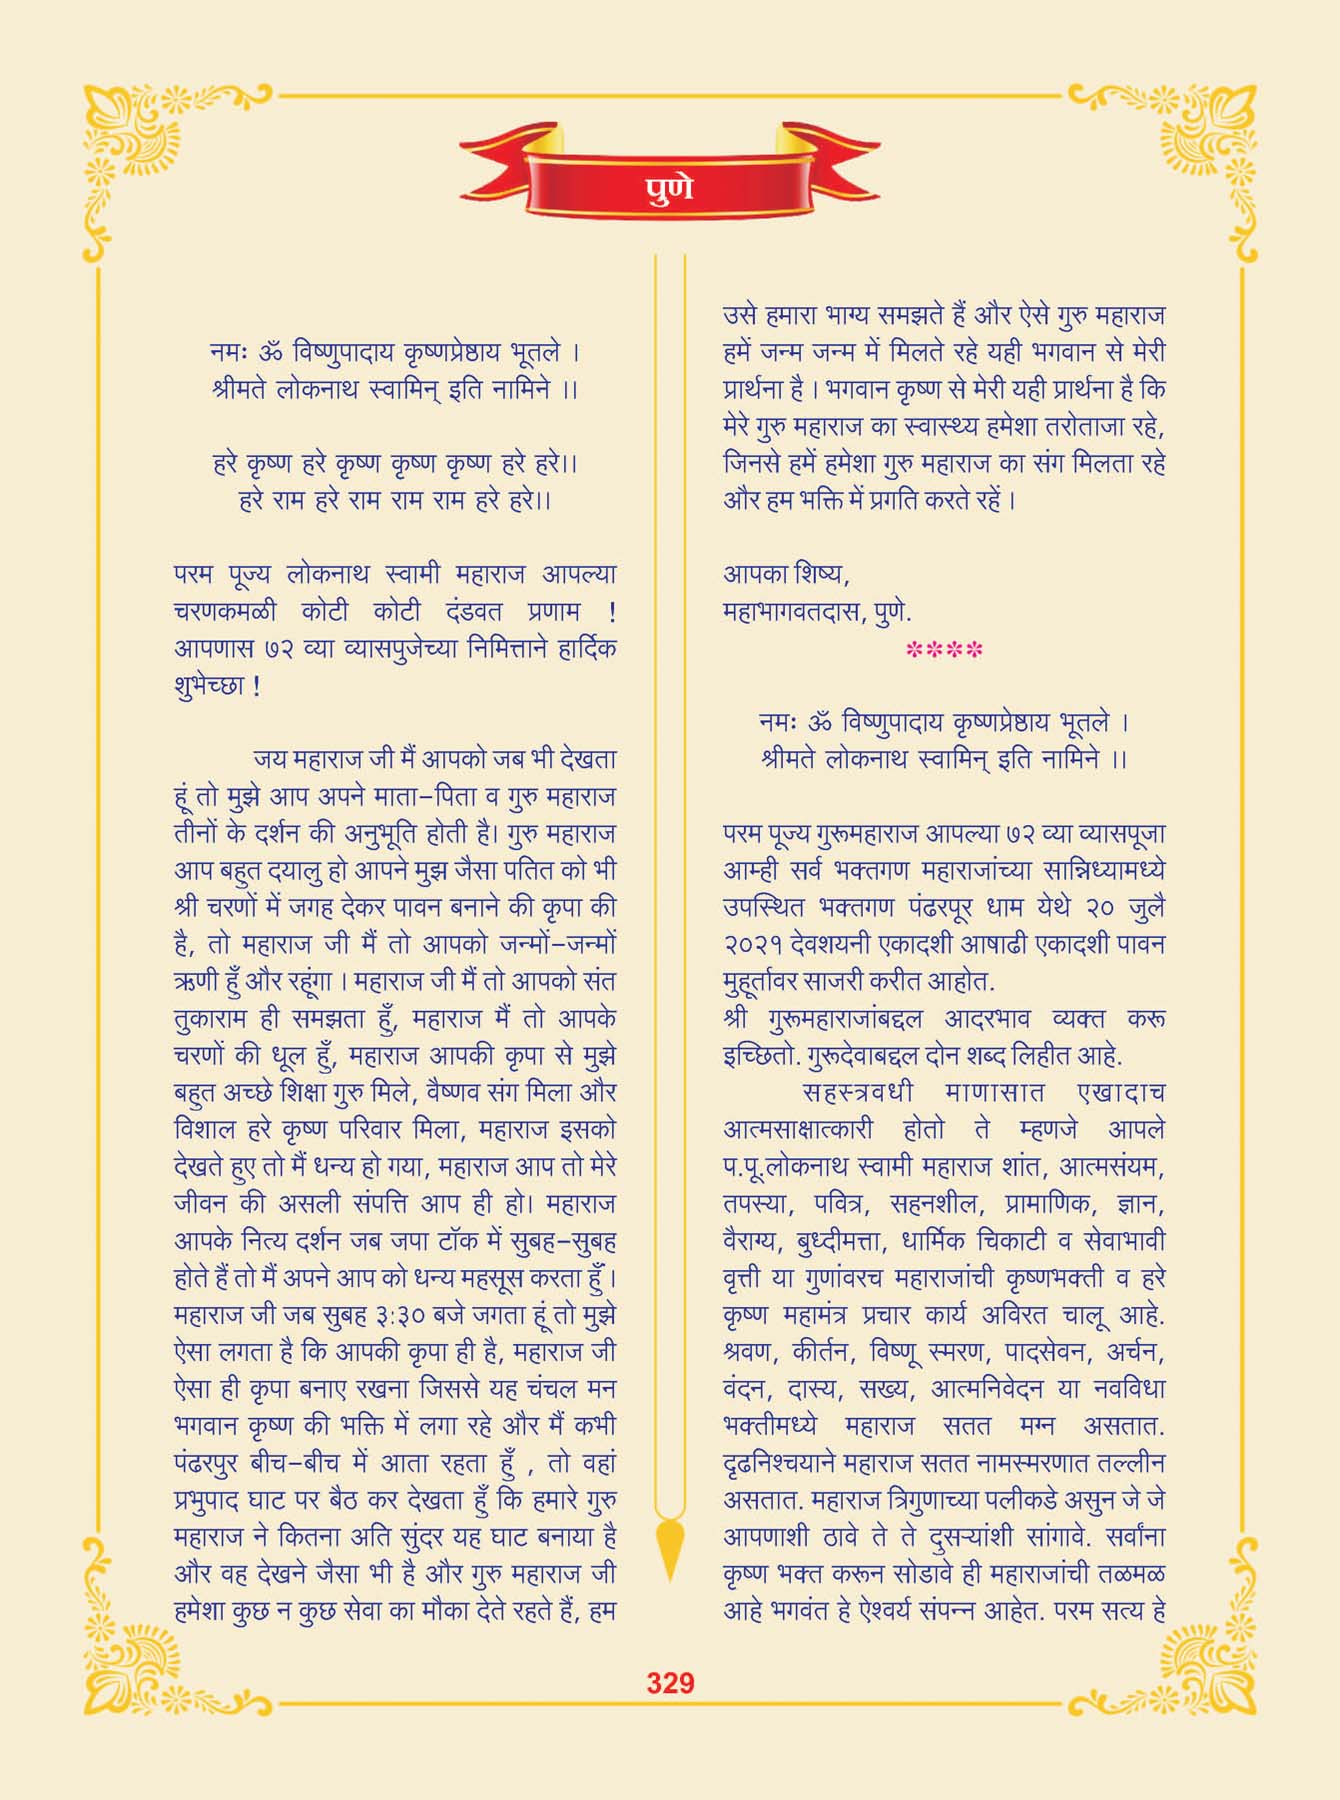 पुणे
नमः ॐ विष्णुपादाय कृष्णप्रेष्ठाय भूतले ।
श्रीमते लोकनाथ स्वामिन् इति नामिने ।।
हरे कृष्ण हरे कृष्ण कृष्ण कृष्ण हरे हरे।।
हरे राम हरे राम राम राम हरे हरे।।
परम पूज्य लोकनाथ स्वामी महाराज आपल्या
चरणकमळी कोटी कोटी दंडवत प्रणाम !
आपणास ७२ व्या व्यासपुजेच्या निमित्ताने हार्दिक
शुभेच्छा !
जय महाराज जी मैं आपको जब भी देखता
हूं तो मुझे आप अपने माता-पिता व गुरु महाराज
तीनों के दर्शन की अनुभूति होती है। गुरु महाराज
आप बहुत दयालु हो आपने मुझ जैसा पतित को भी
श्री चरणों में जगह देकर पावन बनाने की कृपा की
है, तो महाराज जी मैं तो आपको जन्मों-जन्मों
ऋणी हुँ और रहूंगा । महाराज जी मैं तो आपको संत
तुकाराम ही समझता हुँ, महाराज मैं तो आपके
चरणों की धूल हुँ, महाराज आपकी कृपा से मुझे
बहुत अच्छे शिक्षा गुरु मिले, वैष्णव संग मिला और
विशाल हरे कृष्ण परिवार मिला, महाराज इसको
देखते हुए तो मैं धन्य हो गया, महाराज आप तो मेरे
जीवन की असली संपत्ति आप ही हो। महाराज
आपके नित्य दर्शन जब जपा टॉक में सुबह-सुबह
होते हैं तो मैं अपने आप को धन्य महसूस करता हुँ ।
महाराज जी जब सुबह ३:३० बजे जगता हूं तो मुझे
ऐसा लगता है कि आपकी कृपा ही है, महाराज जी
ऐसा ही कृपा बनाए रखना जिससे यह चंचल मन
भगवान कृष्ण की भक्ति में लगा रहे और मैं कभी
पंढरपुर बीच-बीच में आता रहता हुँ , तो वहां
प्रभुपाद घाट पर बैठ कर देखता हुँ कि हमारे गुरु
महाराज ने कितना अति सुंदर यह घाट बनाया है
और वह देखने जैसा भी है और गुरु महाराज जी
हमेशा कुछ न कुछ सेवा का मौका देते रहते हैं, हम
उसे हमारा भाग्य समझते हैं और ऐसे गुरु महाराज
हमें जन्म जन्म में मिलते रहे यही भगवान से मेरी
प्रार्थना है । भगवान कृष्ण से मेरी यही प्रार्थना है कि
मेरे गुरु महाराज का स्वास्थ्य हमेशा तरोताजा रहे,
जिनसे हमें हमेशा गुरु महाराज का संग मिलता रहे
और हम भक्ति में प्रगति करते रहें ।
आपका शिष्य,
महाभागवतदास, पुणे.
****
नमः ॐ विष्णुपादाय कृष्णप्रेष्ठाय भूतले ।
श्रीमते लोकनाथ स्वामिन् इति नामिने ।।
परम पूज्य गुरूमहाराज आपल्या ७२ व्या व्यासपूजा
आम्ही सर्व भक्तगण महाराजांच्या सान्निध्यामध्ये
उपस्थित भक्तगण पंढरपूर धाम येथे २० जुलै
२०२१ देवशयनी एकादशी आषाढी एकादशी पावन
मुहूर्तावर साजरी करीत आहोत.
श्री गुरूमहाराजांबद्दल आदरभाव व्यक्त करू
इच्छितो. गुरूदेवाबद्दल दोन शब्द लिहीत आहे.
सहस्त्रवधी माणासात एखादाच
आत्मसाक्षात्कारी होतो ते म्हणजे आपले
प.पू.लोकनाथ स्वामी महाराज शांत, आत्मसंयम,
तपस्या, पवित्र, सहनशील, प्रामाणिक, ज्ञान,
वैराग्य, बुध्दीमत्ता, धार्मिक चिकाटी व सेवाभावी
वृत्ती या गुणांवरच महाराजांची कृष्णभक्ती व हरे
कृष्ण महामंत्र प्रचार कार्य अविरत चालू आहे.
श्रवण, कीर्तन, विष्णू स्मरण, पादसेवन, अर्चन,
वंदन, दास्य, सख्य, आत्मनिवेदन या नवविधा
भक्तीमध्ये महाराज सतत मग्न असतात.
दृढनिश्चयाने महाराज सतत नामस्मरणात तल्लीन
असतात. महाराज त्रिगुणाच्या पलीकडे असुन जे जे
आपणाशी ठावे ते ते दुसऱ्यांशी सांगावे. सर्वांना
कृष्ण भक्त करून सोडावे ही महाराजांची तळमळ
आहे भगवंत हे ऐश्वर्य संपन्न आहेत. परम सत्य हे
329